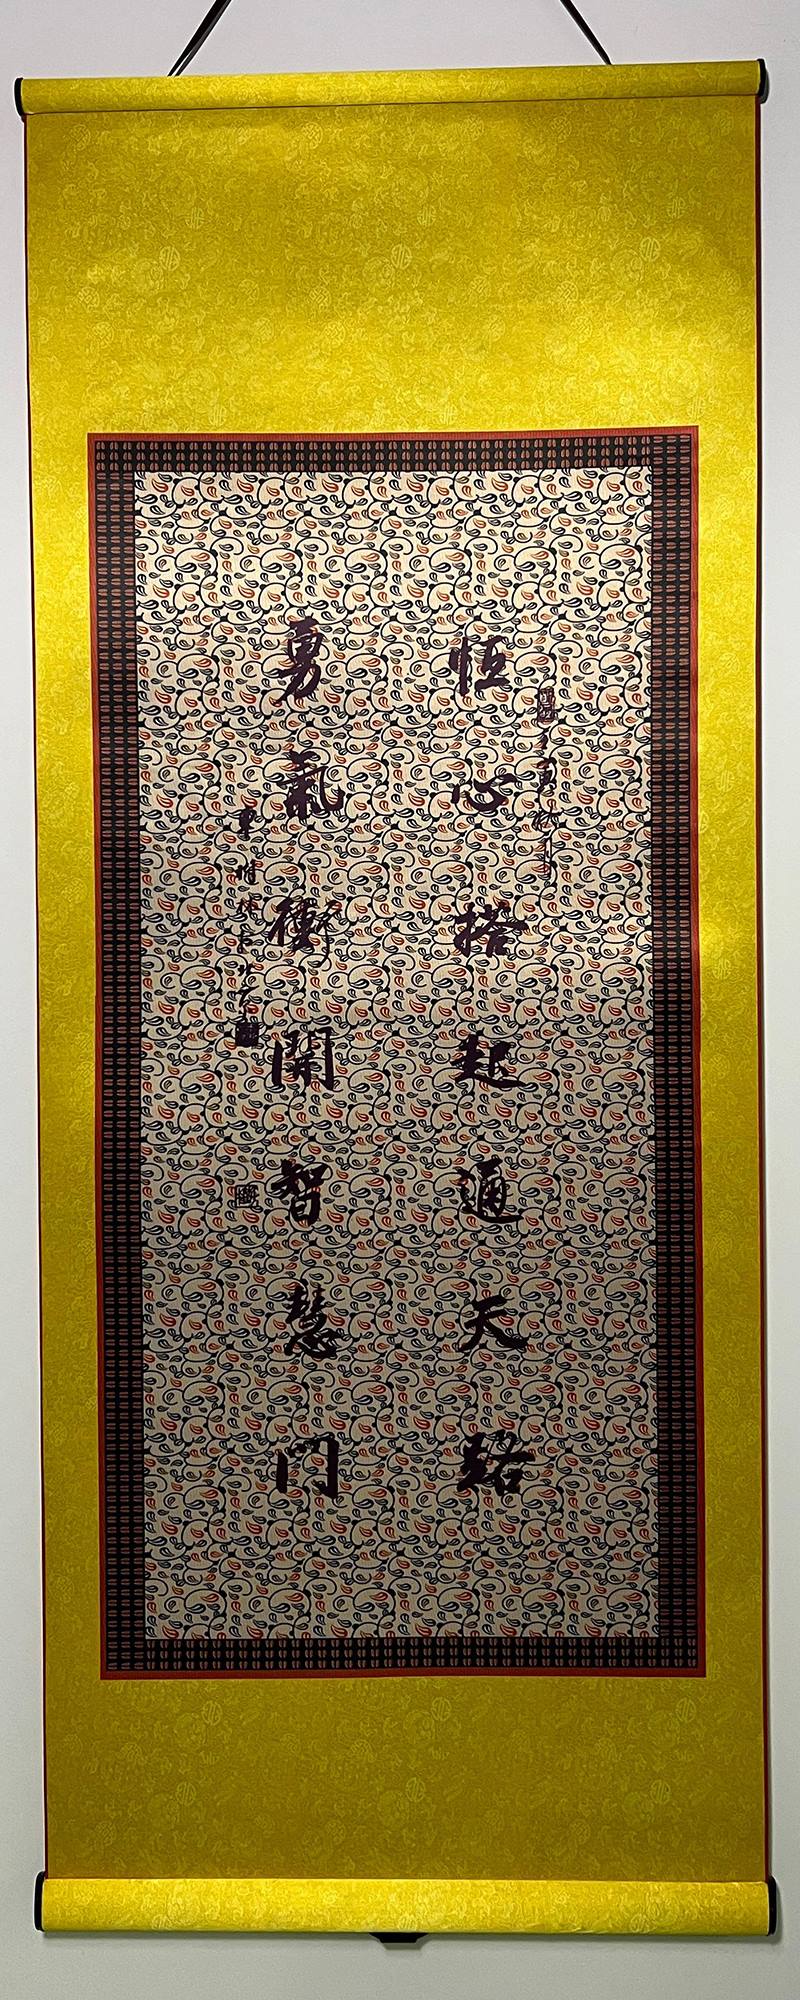 恒心搭起通天路
勇氣衝開智慧門